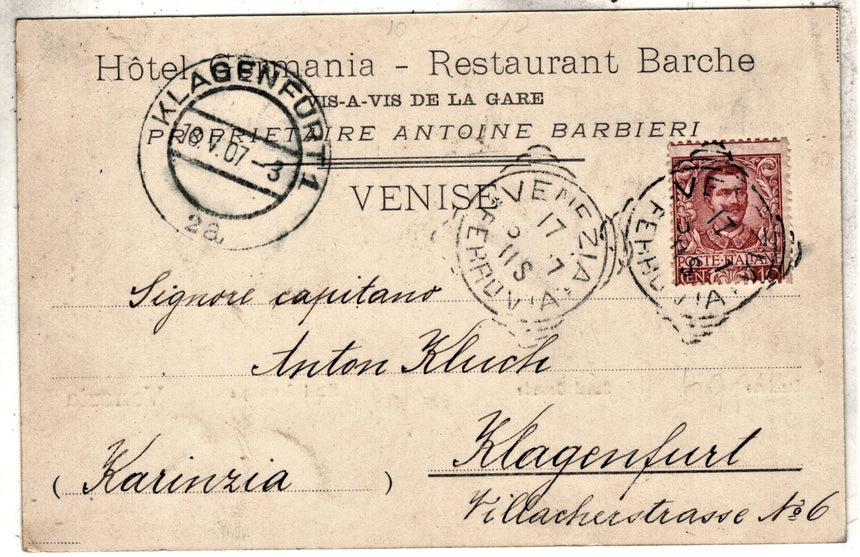 Hôtel Germania - Restaurant Barche
VIS-A-VIS DE LA GARE
PROPRIETAIRE ANTOINE BARBIERI
VENISE
KLAGENFURT 1
18.V.07-3
2a
VENEZIA
17
7
11S
FERROVIA
VENEZIA
17
7
FERROVIA
POSTE·ITALIANE
CENT. 10
Signore capitano
Anton Kluch
Klagenfurt
(Karinzia)
Villacherstrasse No 6